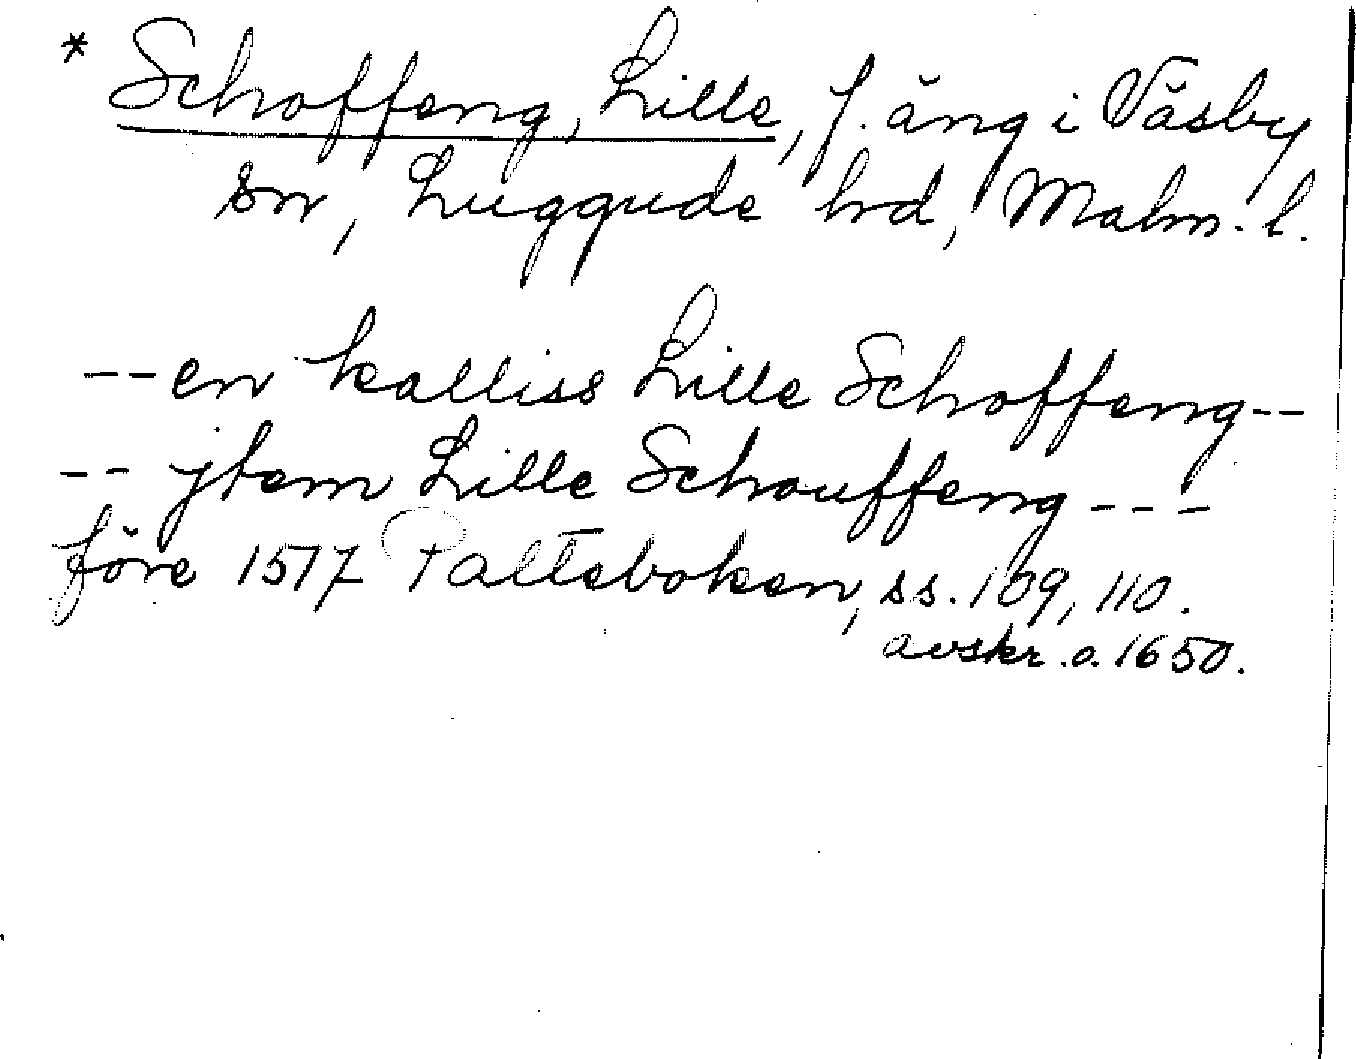 * Schoffeng, Lille, f. äng i Väsby
sn, Luggude hd, Malm. l.
--en kalliss Lille Schoffeng--
-- jtem Lille Schouffeng---
före 1517 Palteboken, ss. 109, 110.
avskr. o. 1650.